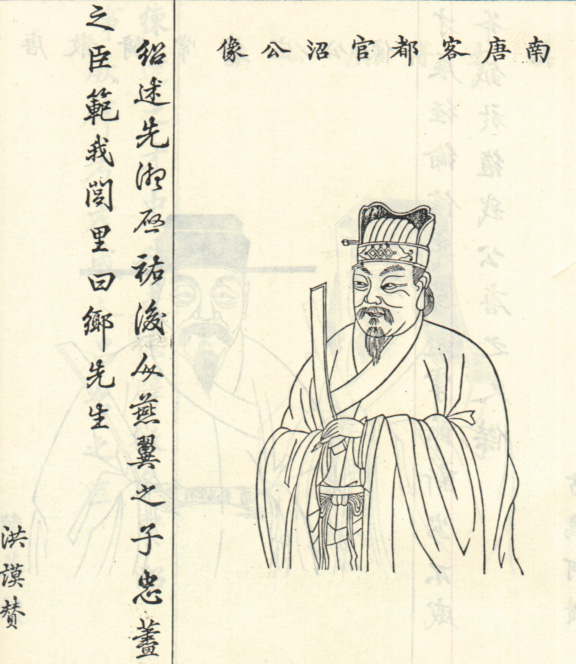 南唐客都官沼公像
紹述先啓祐後人燕翼之子忠藎
之臣範我閭里曰鄉先生
洪謨贊